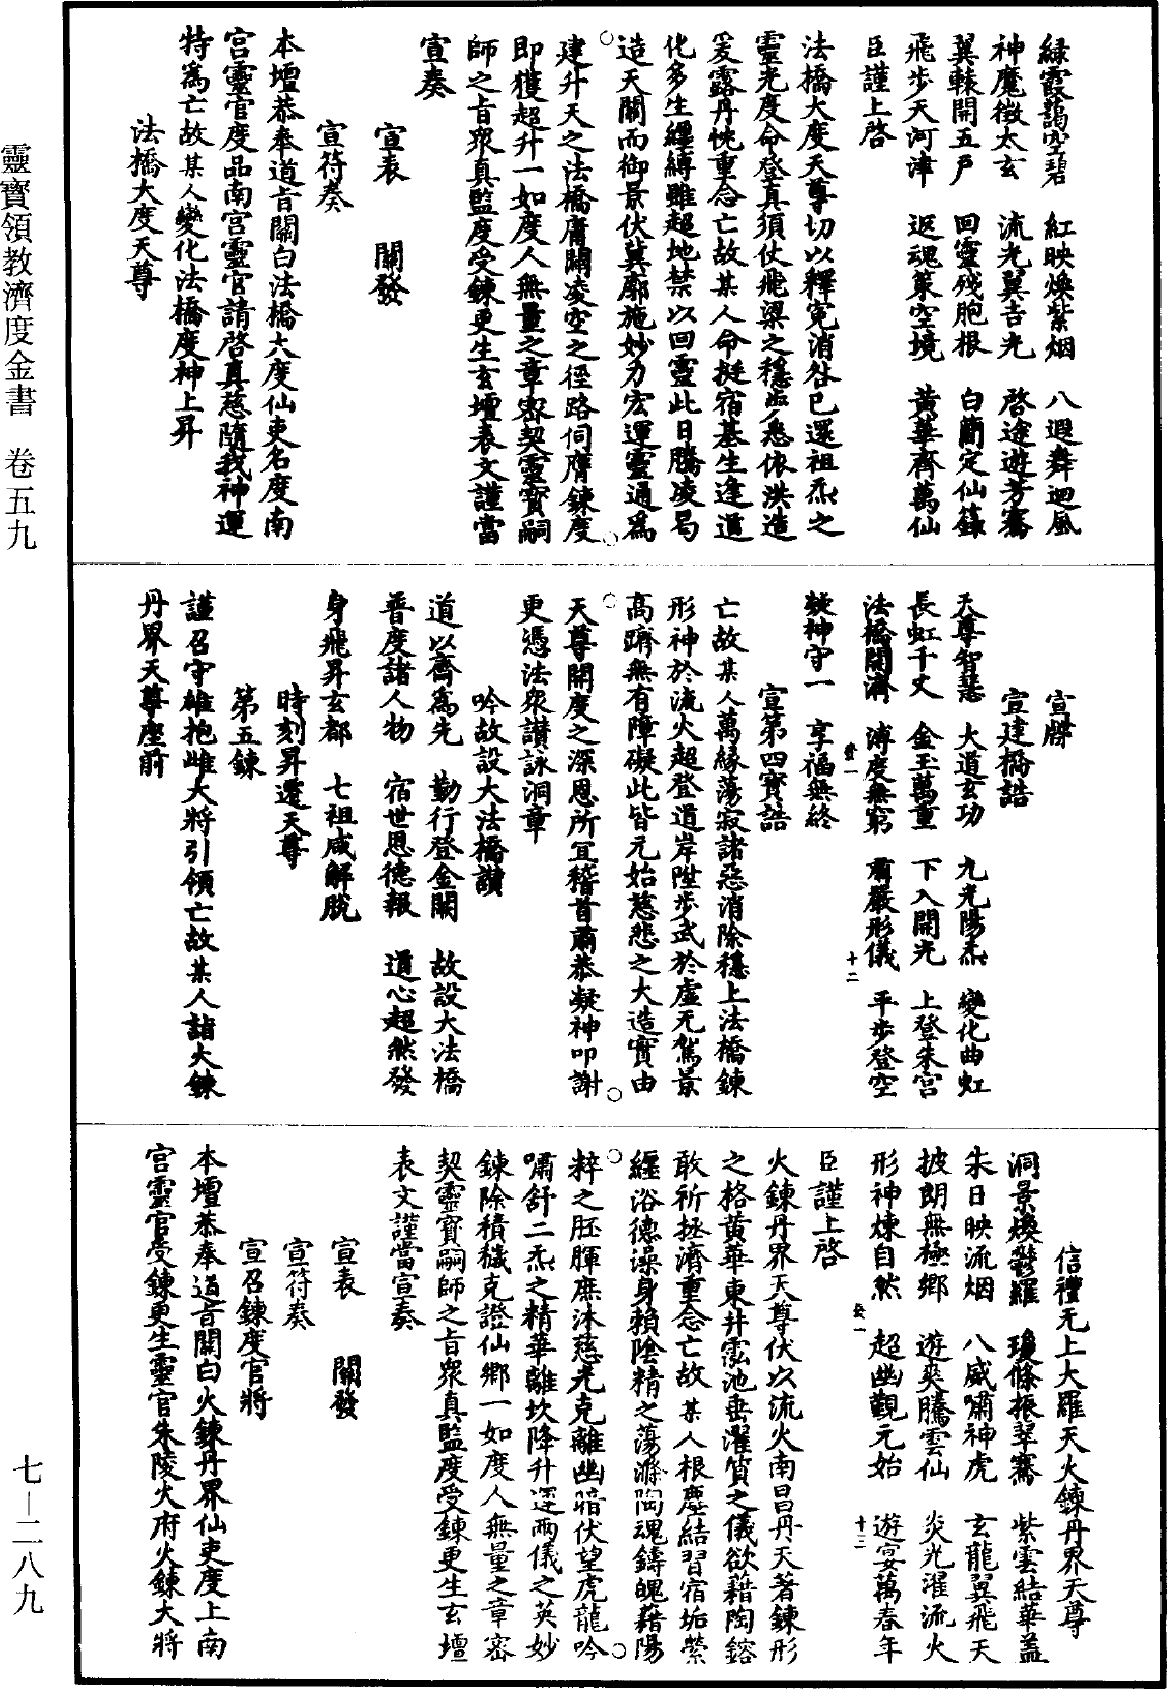 綠霞藹空碧　紅映煥紫烟　八遐舞迴風
神魔徵太玄　流光翼吉光　啓途遊芳騫
翼轅開五戶　回靈殘胞根　白簡定仙籙
飛步天河津　返魂策空境　黃華齊萬仙
臣謹上啓
法橋大度天尊切以釋寃消咎已還祖炁之
靈光度命登真須仗飛梁之穩步悉依洪造
爰露丹忱重念亡故某人命挺宿基生逢道
化多生纏縛雖超地禁以回靈此日騰凌曷
造天關而御景伏冀廓施妙力宏運靈通爲
建升天之法橋庸闢凌空之徑路伺膺鍊度
即獲超升一如度人無量之章密契靈寶嗣
師之旨衆真監度受鍊更生玄壇表文謹當
宣奏
宣表　關發
宣符奏
本壇恭奉道旨關白法橋大度仙吏名度南
宮靈官度品南宮靈官請啓真慈隨我神運
特爲亡故某人變化法橋度神上昇
法橋大度天尊
宣牒
宣建橋誥
天尊智慧　大道玄功　九光陽炁　變化曲虹
長虹千丈　金玉萬重　下入開光　上登朱宮
法橋開濟　溥度無窮　肅嚴形儀　平步登空
凝神守一　享福無終
宣第四寶誥
亡故某人萬緣蕩寂諸惡消除穩上法橋鍊
形神於流火超登道岸陞步武於虛无駕景
高躋無有障礙此皆元始慈悲之大造實由
天尊開度之深恩所宜稽首肅恭凝神叩謝
更憑法衆讃詠洞章
吟故設大法橋讃
道以齊爲先　勤行登金闕　故設大法橋
普度諸人物　宿世恩德報　道心超然發
身飛昇玄都　七祖咸解脫
時刻昇遷天尊
第五鍊
謹召守雄抱雌大將引領亡故某人詣火鍊
丹界天尊座前
信禮无上大羅天火鍊丹界天尊
洞景煥鬱羅　瓊條振翠騫　紫雲結華蓋
朱日映流烟　八威嘯神虎　玄龍翼飛天
披朗無極鄉　遊爽騰雲仙　炎光濯流火
形神煉自然　超幽觀元始　遊宴萬春年
臣謹上啓
火鍊丹界天尊伏以流火南昌丹天著鍊形
之格黃華東井泓池垂濯質之儀欲藉陶鎔
敢祈拯濟重念亡故某人根塵結習宿垢縈
纏浴德澡身賴陰精之蕩滌陶魂鑄魄藉陽
粹之胚腪庶沐慈光克離幽暗伏望虎龍吟
嘯舒二炁之精華離坎降升逐兩儀之英妙
鍊除積穢克證仙鄉一如度人無量之章密
契靈寶嗣師之旨衆真監度受鍊更生玄壇
表文謹當宣奏
宣表　關發
宣符奏
宣召鍊度官將
本壇恭奉道旨關白火鍊丹界仙吏度上南
宮靈官受鍊更生靈官朱陵火府火鍊大將
靈寶領教濟度金書　卷五九
七—二八九